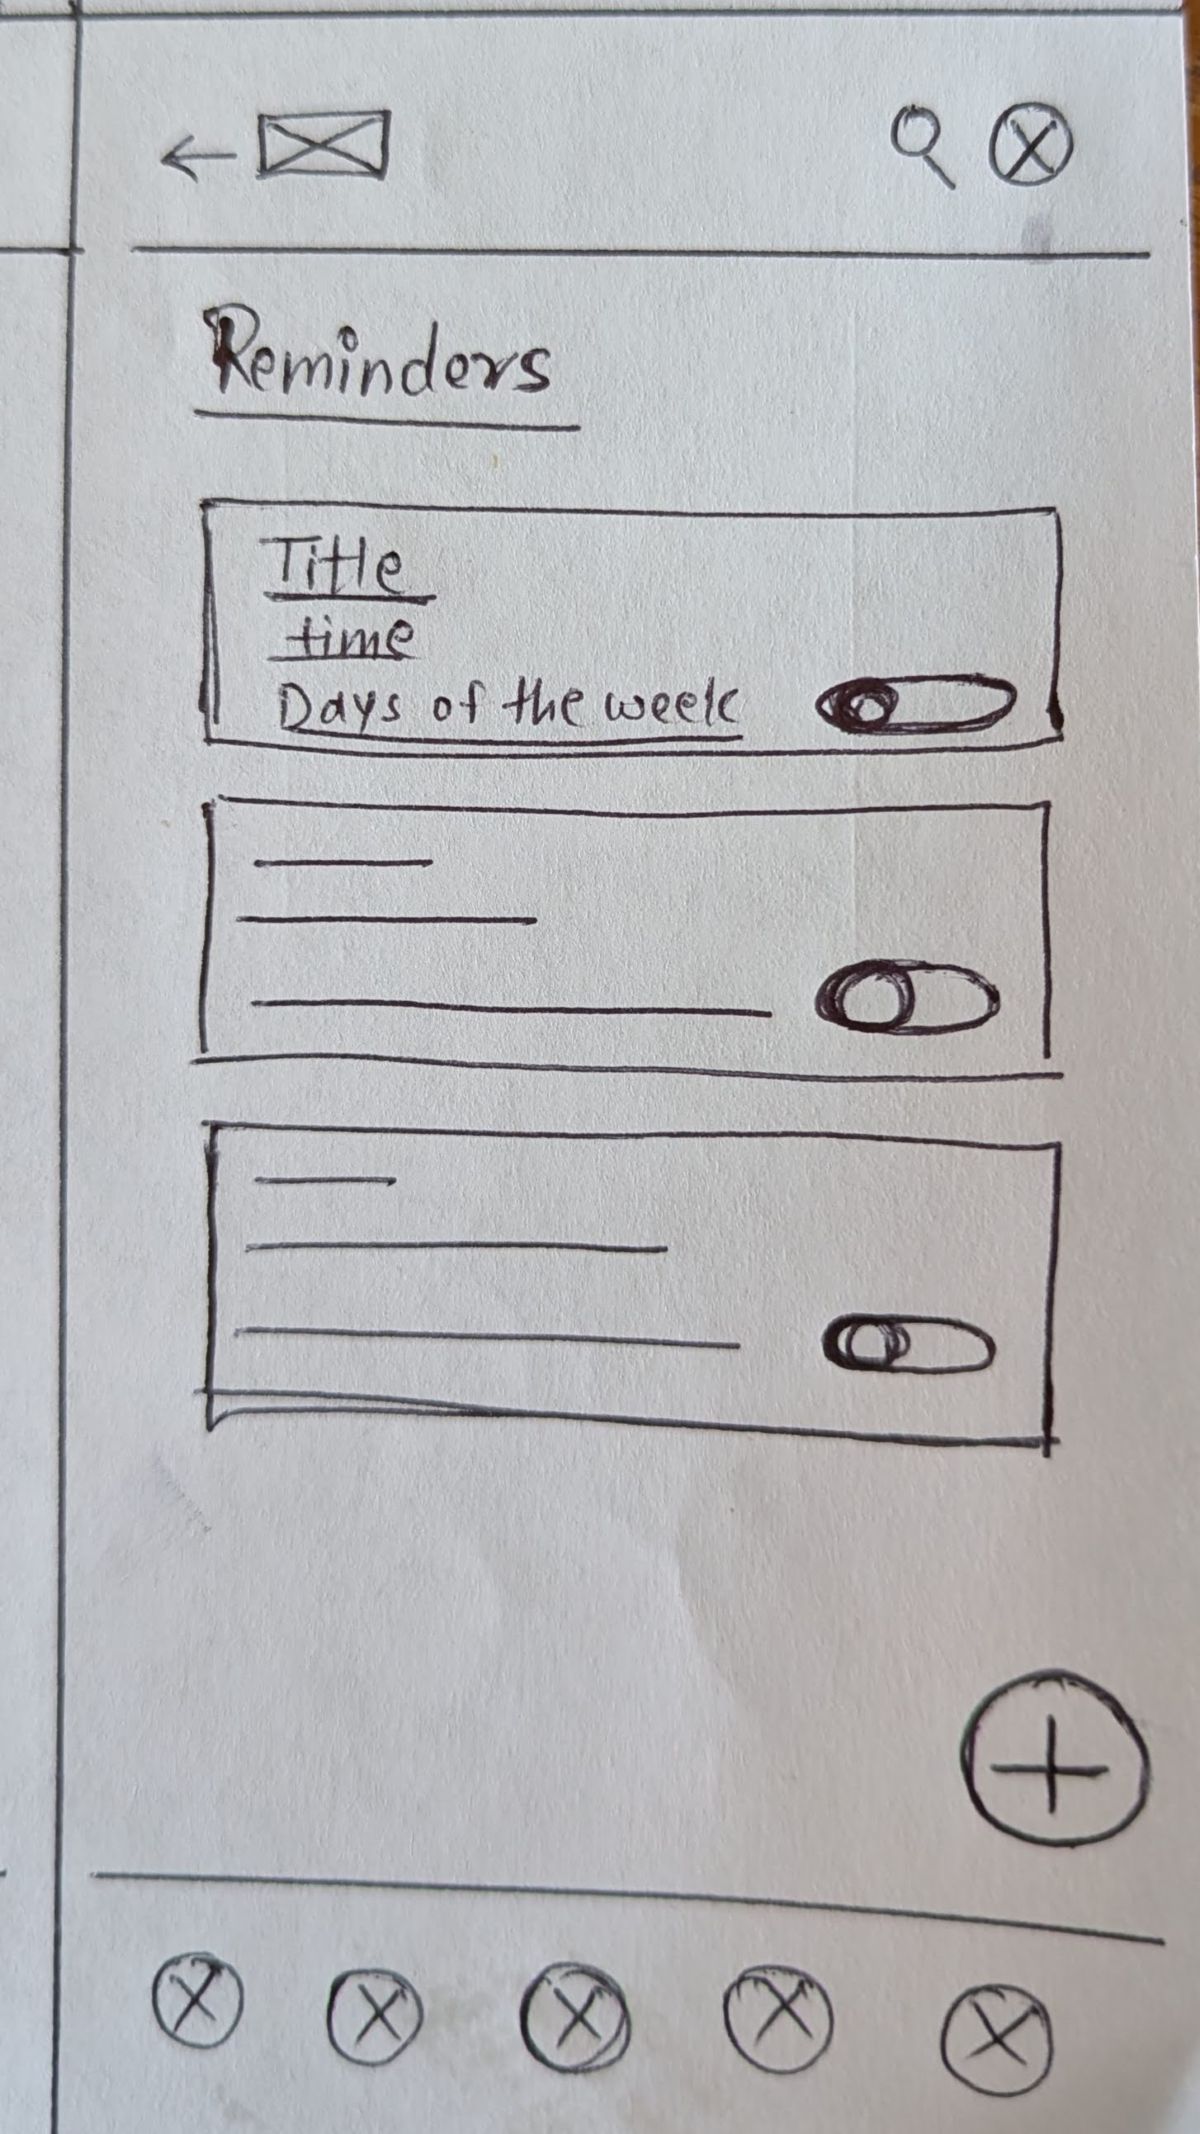 Reminders
Title
time
Days of the week